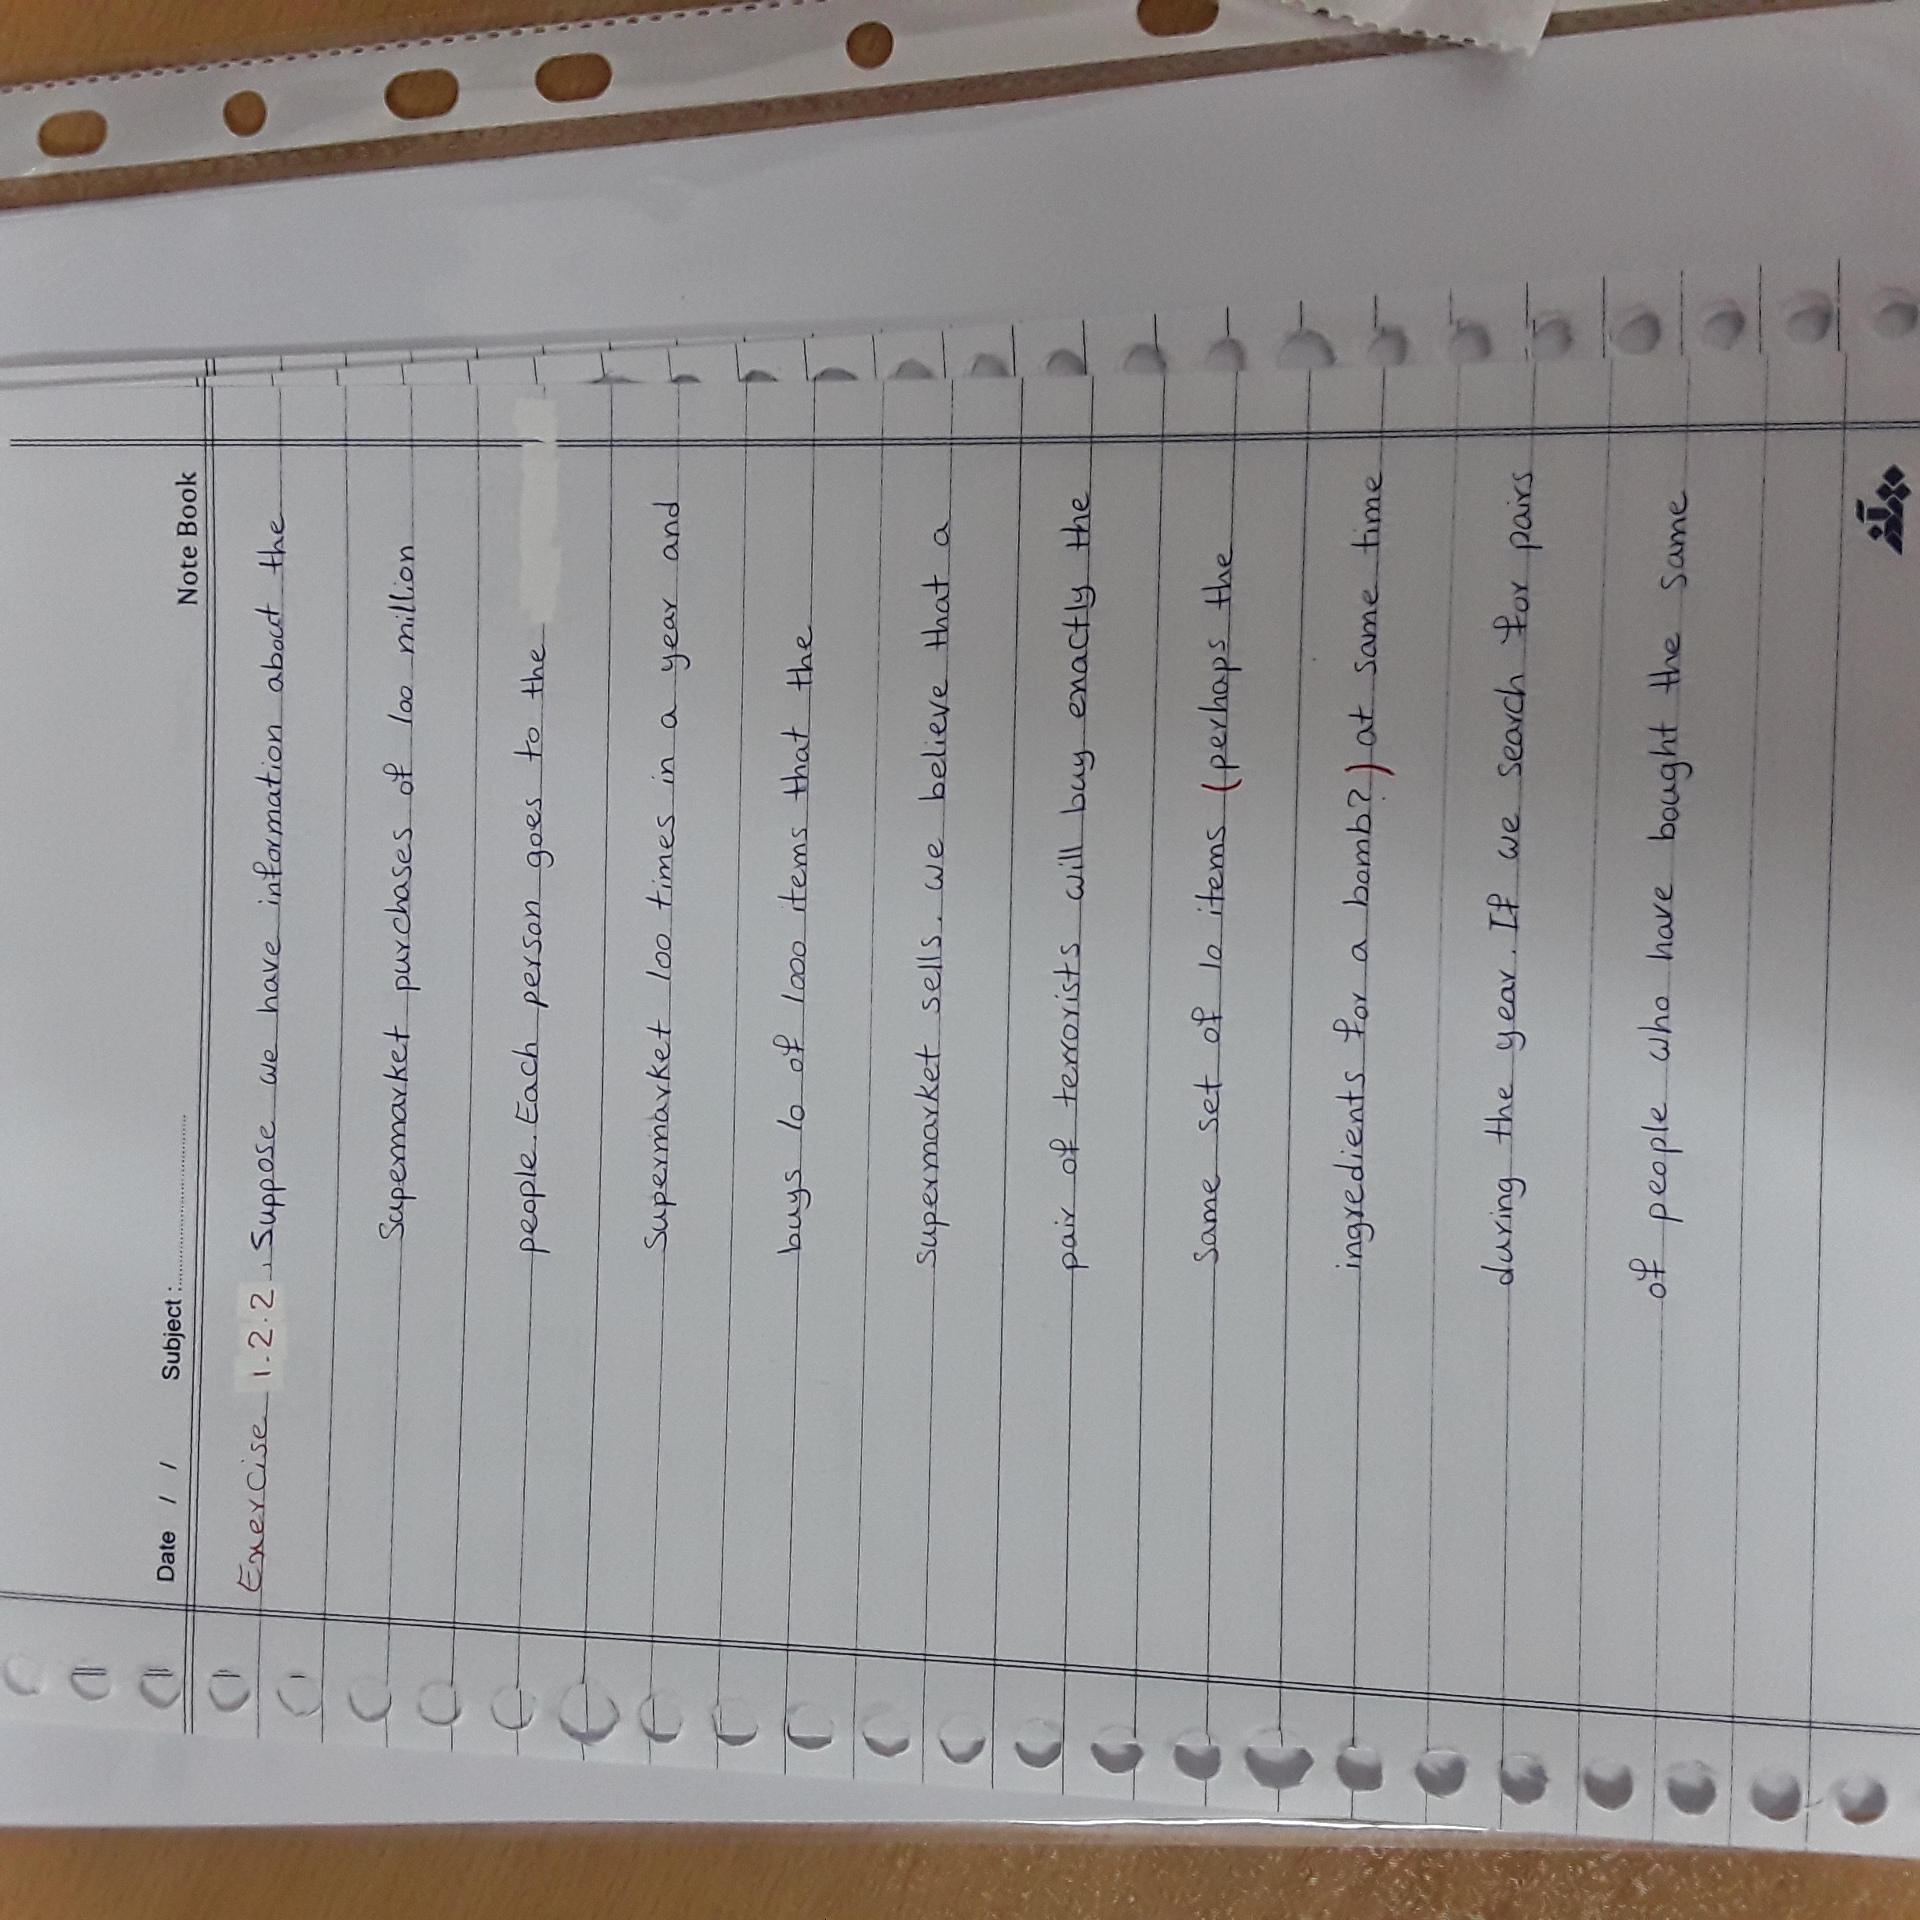 Date / / Subject :
Note Book
Exercise 1.2.2. Suppose we have information about the
Supermarket purchases of 100 million
people. Each person goes to the
Supermarket 100 times in a year and
buys 10 of 1000 items that the
supermarket sells. we believe that a
pair of terrorists will buy exactly the
same set of 10 items (perhaps the
ingredients for a bomb?) at same time
during the year. If we search for pairs
of people who have bought the same